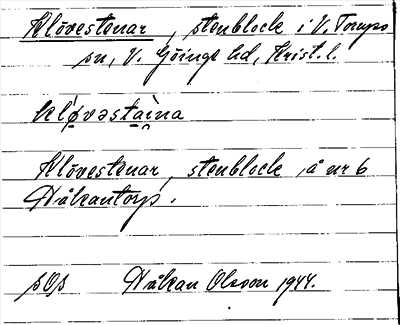 Klövestenar, stenblock i V. Torups
sn, V. Göinge hd, Krist. l.
kløvəstaina
Klövestenar, stenblock, å nr 6
Håkantorp.
sOs Håkan Olsson 1944.